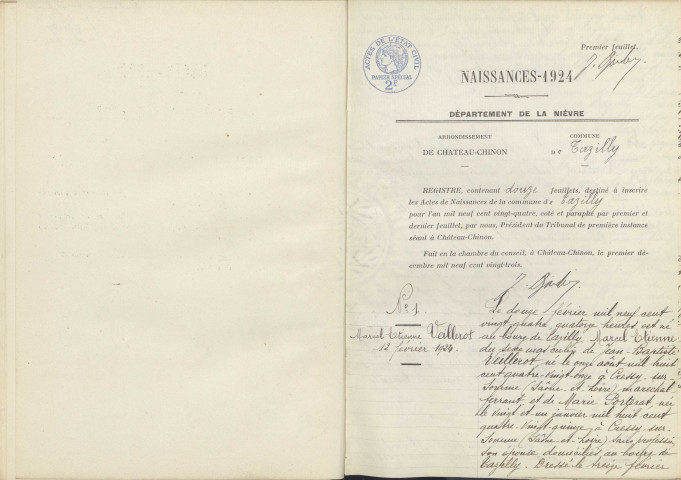 Premier feuillet.
ACTES DE L'ÉTAT CIVIL
PAPIER SPÉCIAL
2E
NAISSANCES-1924
DÉPARTEMENT DE LA NIÈVRE
ARRONDISSEMENT
DE CHATEAU-CHINON
COMMUNE
DE Tazilly
REGISTRE, contenant douze feuillets, destiné à inscrire
les Actes de Naissances de la commune de Tazilly
pour l'an mil neuf cent vingt-quatre, coté et paraphé par premier et
dernier feuillet, par nous, Président du Tribunal de première instance
séant à Château-Chinon.
Fait en la chambre du conseil, à Château-Chinon, le premier dé-
cembre mil neuf cent vingt-trois.
No 1
Marcel Etienne Veillerot
12 février 1924.
Le douze février mil neuf cent
vingt quatre, quatorze heures est né
au bourg de Tazilly, Marcel Etienne
du sexe masculin, de Jean-Baptiste
Veillerot, né le onze août mil huit
cent quatre-vingt-onze à Cressy-sur-
Somme (Saône-et-Loire) maréchal
ferrant, et de Marie née
le vingt et un janvier mil huit cent
quatre-vingt-quinze à Cressy-sur-
Somme (Saône-et-Loire) sans profession
son épouse domiciliés au bourg de
Tazilly. Dressé le treize février